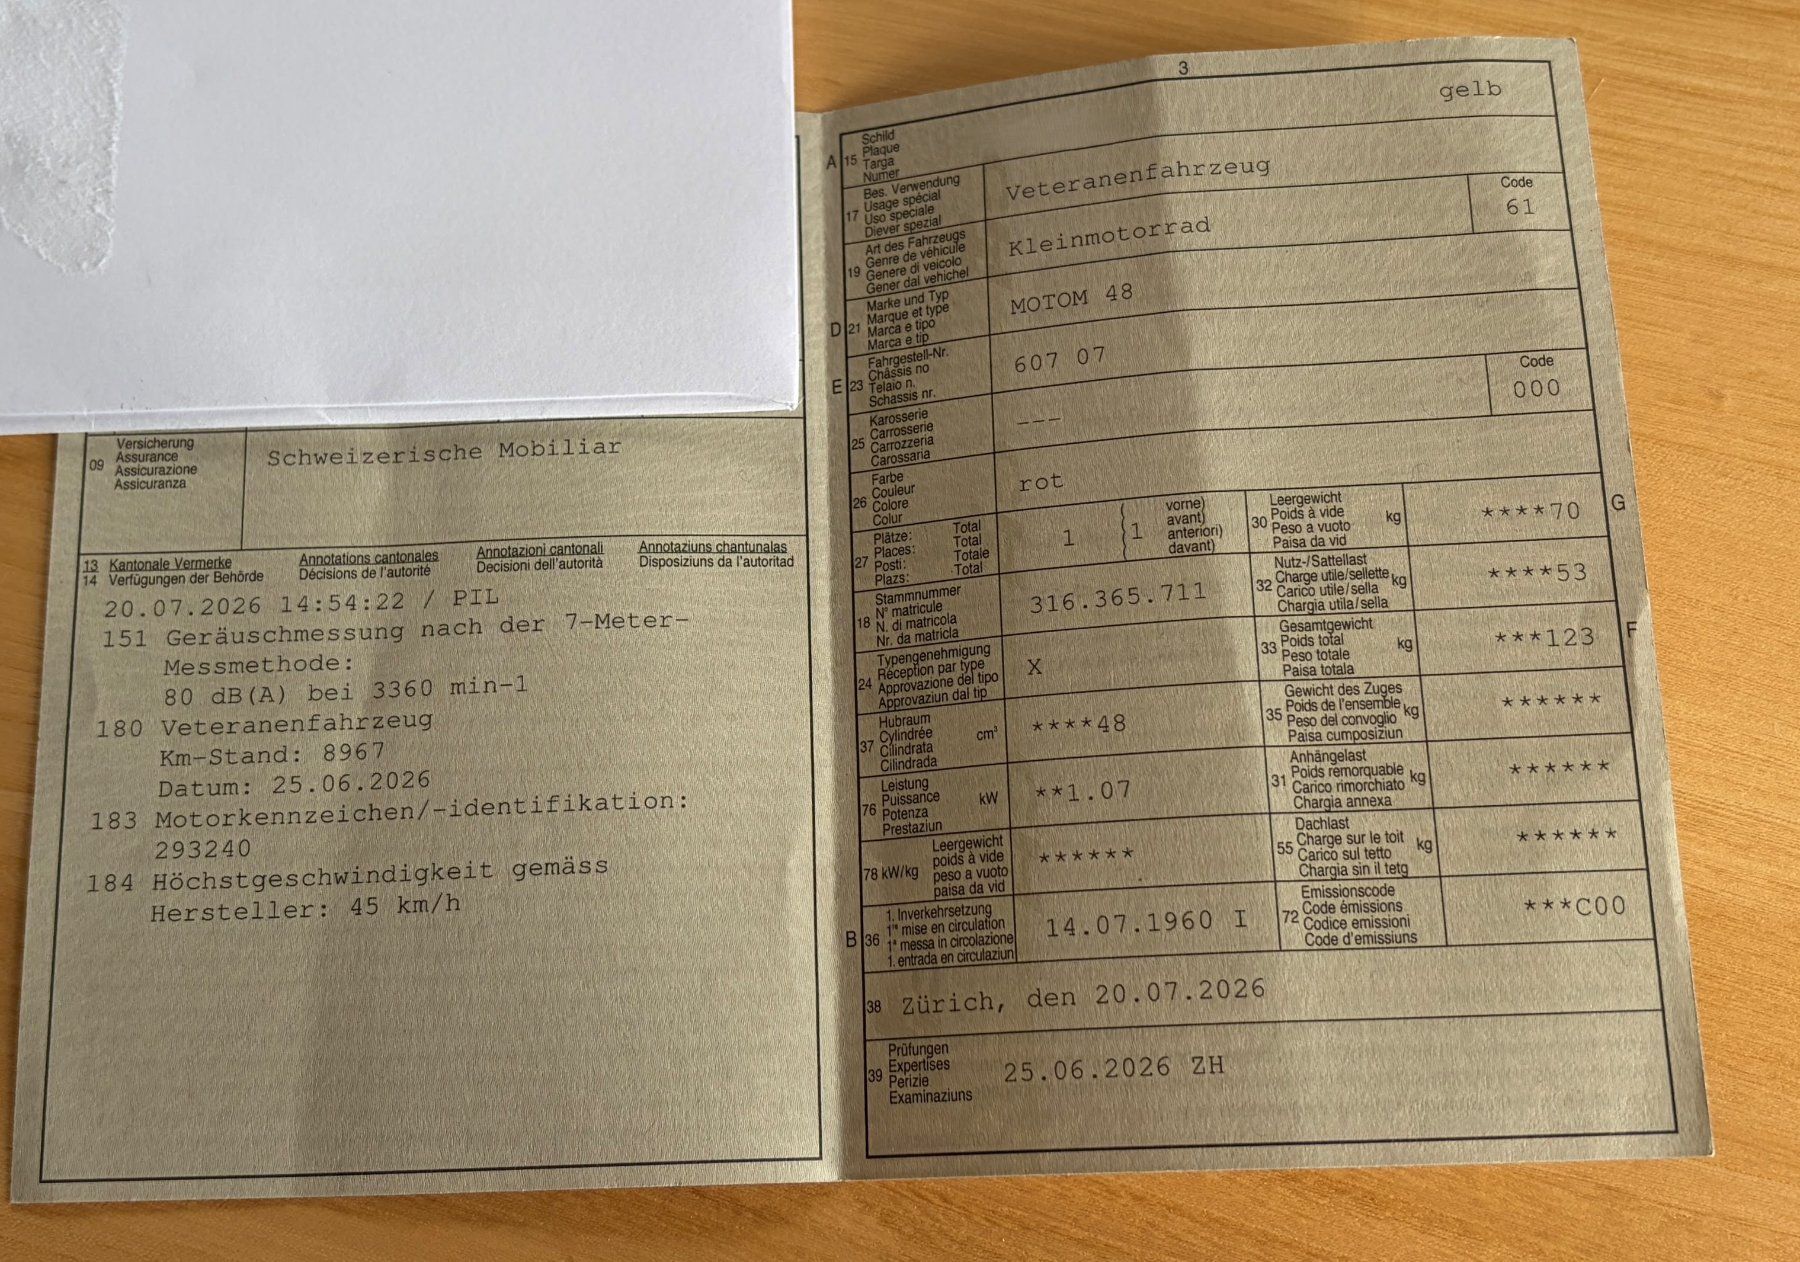 09
Versicherung
Assurance
Assicurazione
Assicuranza
Schweizerische Mobiliar
13 Kantonale Vermerke
14 Verfügungen der Behörde
Annotations cantonales
Décisions de l'autorité
Annotazioni cantonali
Decisioni dell'autorità
Annotaziuns chantunalas
Disposiziuns da l'autoritad
20.07.2026 14:54:22 / PIL
151 Geräuschmessung nach der 7-Meter-
Messmethode:
80 dB(A) bei 3360 min-1
180 Veteranenfahrzeug
Km-Stand: 8967
Datum: 25.06.2026
183 Motorkennzeichen/-identifikation:
293240
184 Höchstgeschwindigkeit gemäss
Hersteller: 45 km/h
3
A 15
Schild
Plaque
Targa
Numer
gelb
17
Bes. Verwendung
Usage spécial
Uso speciale
Diever spezial
Veteranenfahrzeug
19
Art des Fahrzeugs
Genre de véhicule
Genere di veicolo
Gener dal vehichel
Kleinmotorrad
Code
61
D 21
Marke und Typ
Marque et type
Marca e tipo
Marca e tip
MOTOM 48
E 23
Fahrgestell-Nr.
Châssis no
Telaio n.
Schassis nr.
607 07
25
Karosserie
Carrosserie
Carrozzeria
Carossaria
---
Code
000
26
Farbe
Couleur
Colore
Colur
rot
27
Plätze: Total
Places: Total
Posti: Totale
Plazs: Total
1 { 1
vorne)
avant)
anteriori)
davant)
30
Leergewicht
Poids à vide
Peso a vuoto
Paisa da vid
kg
****70
G
18
Stammnummer
N° matricule
N. di matricola
Nr. da matricla
316.365.711
32
Nutz-/Sattellast
Charge utile/sellette
Carico utile/sella
Chargia utila/sella
kg
****53
24
Typengenehmigung
Réception par type
Approvazione del tipo
Approvaziun dal tip
X
33
Gesamtgewicht
Poids total
Peso totale
Paisa totala
kg
***123
F
37
Hubraum
Cylindrée
Cilindrata
Cilindrada
cm³
****48
35
Gewicht des Zuges
Poids de l'ensemble
Peso del convoglio
Paisa cumposiziun
kg
******
76
Leistung
Puissance
Potenza
Prestaziun
kW
**1.07
31
Anhängelast
Poids remorquable
Carico rimorchiato
Chargia annexa
kg
******
78 kW/kg
Leergewicht
poids à vide
peso a vuoto
paisa da vid
******
55
Dachlast
Charge sur le toit
Carico sul tetto
Chargia sin il tetg
kg
******
B 36
1. Inverkehrsetzung
1re mise en circulation
1a messa in circolazione
1. entrada en circulaziun
14.07.1960 I
72
Emissionscode
Code émissions
Codice emissioni
Code d'emissiuns
***C00
38 Zürich, den 20.07.2026
39
Prüfungen
Expertises
Perizie
Examinaziuns
25.06.2026 ZH